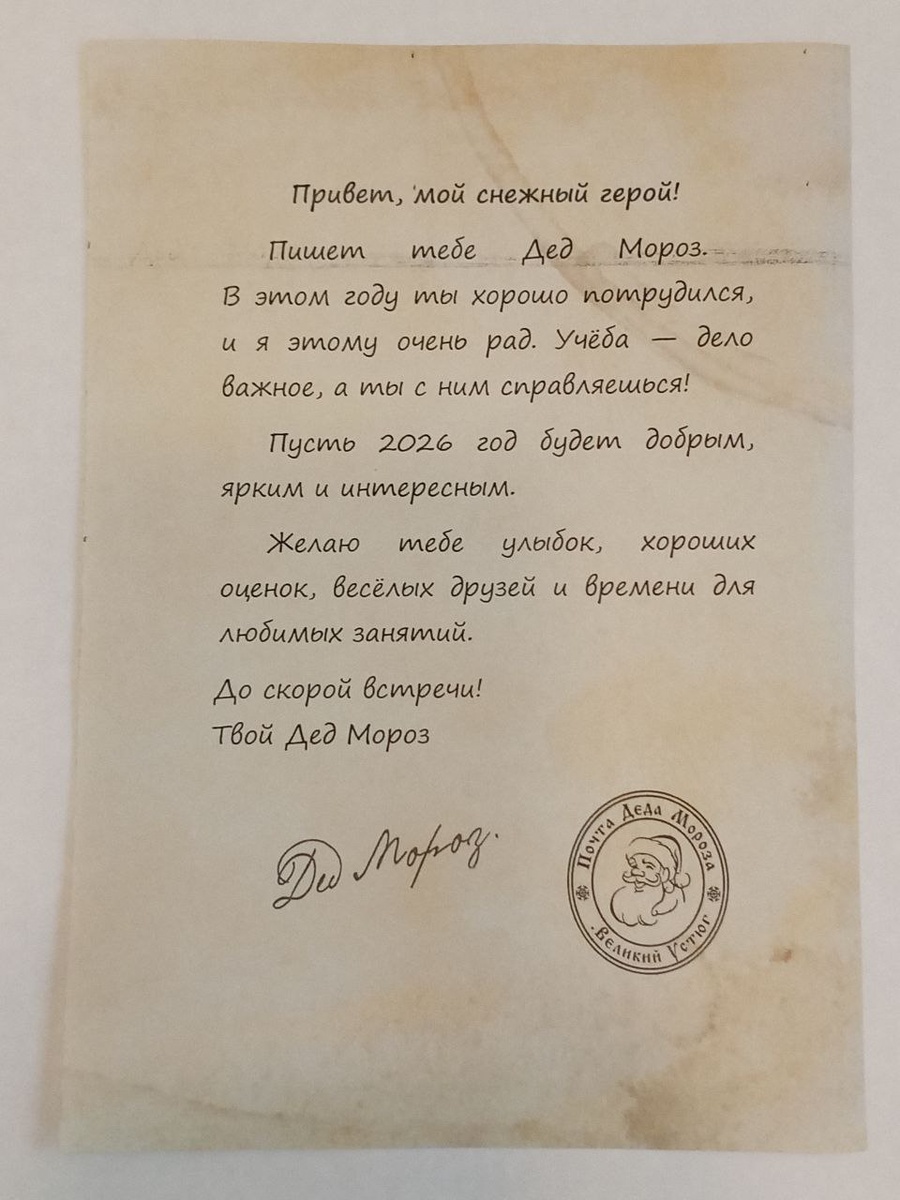 Привет, мой снежный герой!
Пишет тебе Дед Мороз.
В этом году ты хорошо потрудился,
и я этому очень рад. Учёба — дело
важное, а ты с ним справляешься!
Пусть 2026 год будет добрым,
ярким и интересным.
Желаю тебе улыбок, хороших
оценок, весёлых друзей и времени для
любимых занятий.
До скорой встречи!
Твой Дед Мороз
Дед Мороз.
Почта Деда Мороза
Великий Устюг